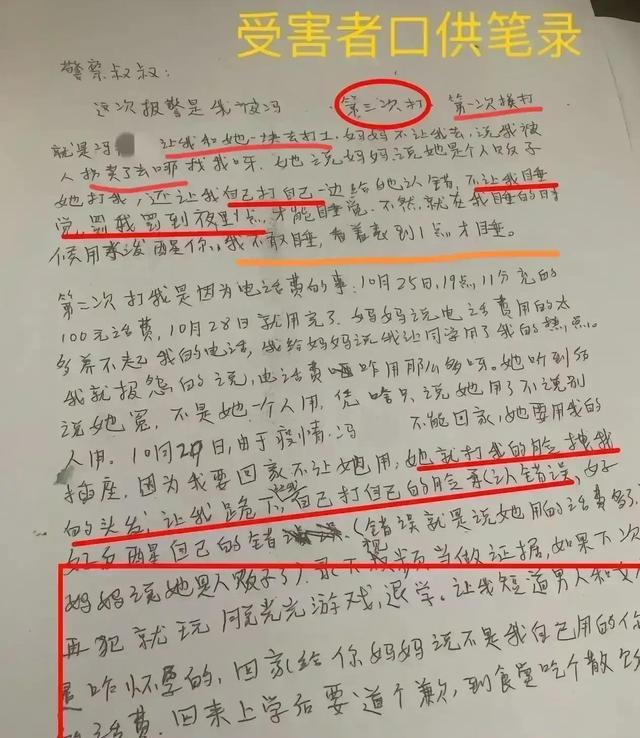 受害者口供笔录
警察叔叔:
这次报警是我被冯 第三次打 第一次挨打
就是冯 让我和她一块去打工,妈妈不让我去,说我被
人拐卖了去哪找我呀.她说妈妈说她是个人贩子
她打我,还让我自己打自己一边给她认错,不让我睡
觉,罚我罚到夜里1点,才能睡觉.不然,就在我睡的时
候用水泼醒你,我不敢睡,看着表到1点才睡。
第二次打我是因为电话费的事:10月25日,19点,11分充的
100元话费,10月28日就用完了.妈妈说电话费用的太
多养不起我的电话,我给妈妈说我让同学用了我的热点.
我就报怨的说,电话费咋用那么多呀。她听到后
说她冤,不是她一个人用,凭啥只说她用了不说别
人用。10月29日,由于疫情.冯 不能回家,她要用我的
插座.因为我要回家不让她用,她就打我的脸拽我
的头发,让我跪下,自己打自己的脸再认错误,好
好反醒自己的错 (错误就是说她用的话费多了,
妈妈说她是人贩子了)录下视频当做证据,如果下次
再犯就玩脱光光游戏,退学。让我知道男人和女
是咋怀孕的,回家给你妈妈说不是我自己用的你
的话费.回来上学后要道个歉,到食堂吃个散